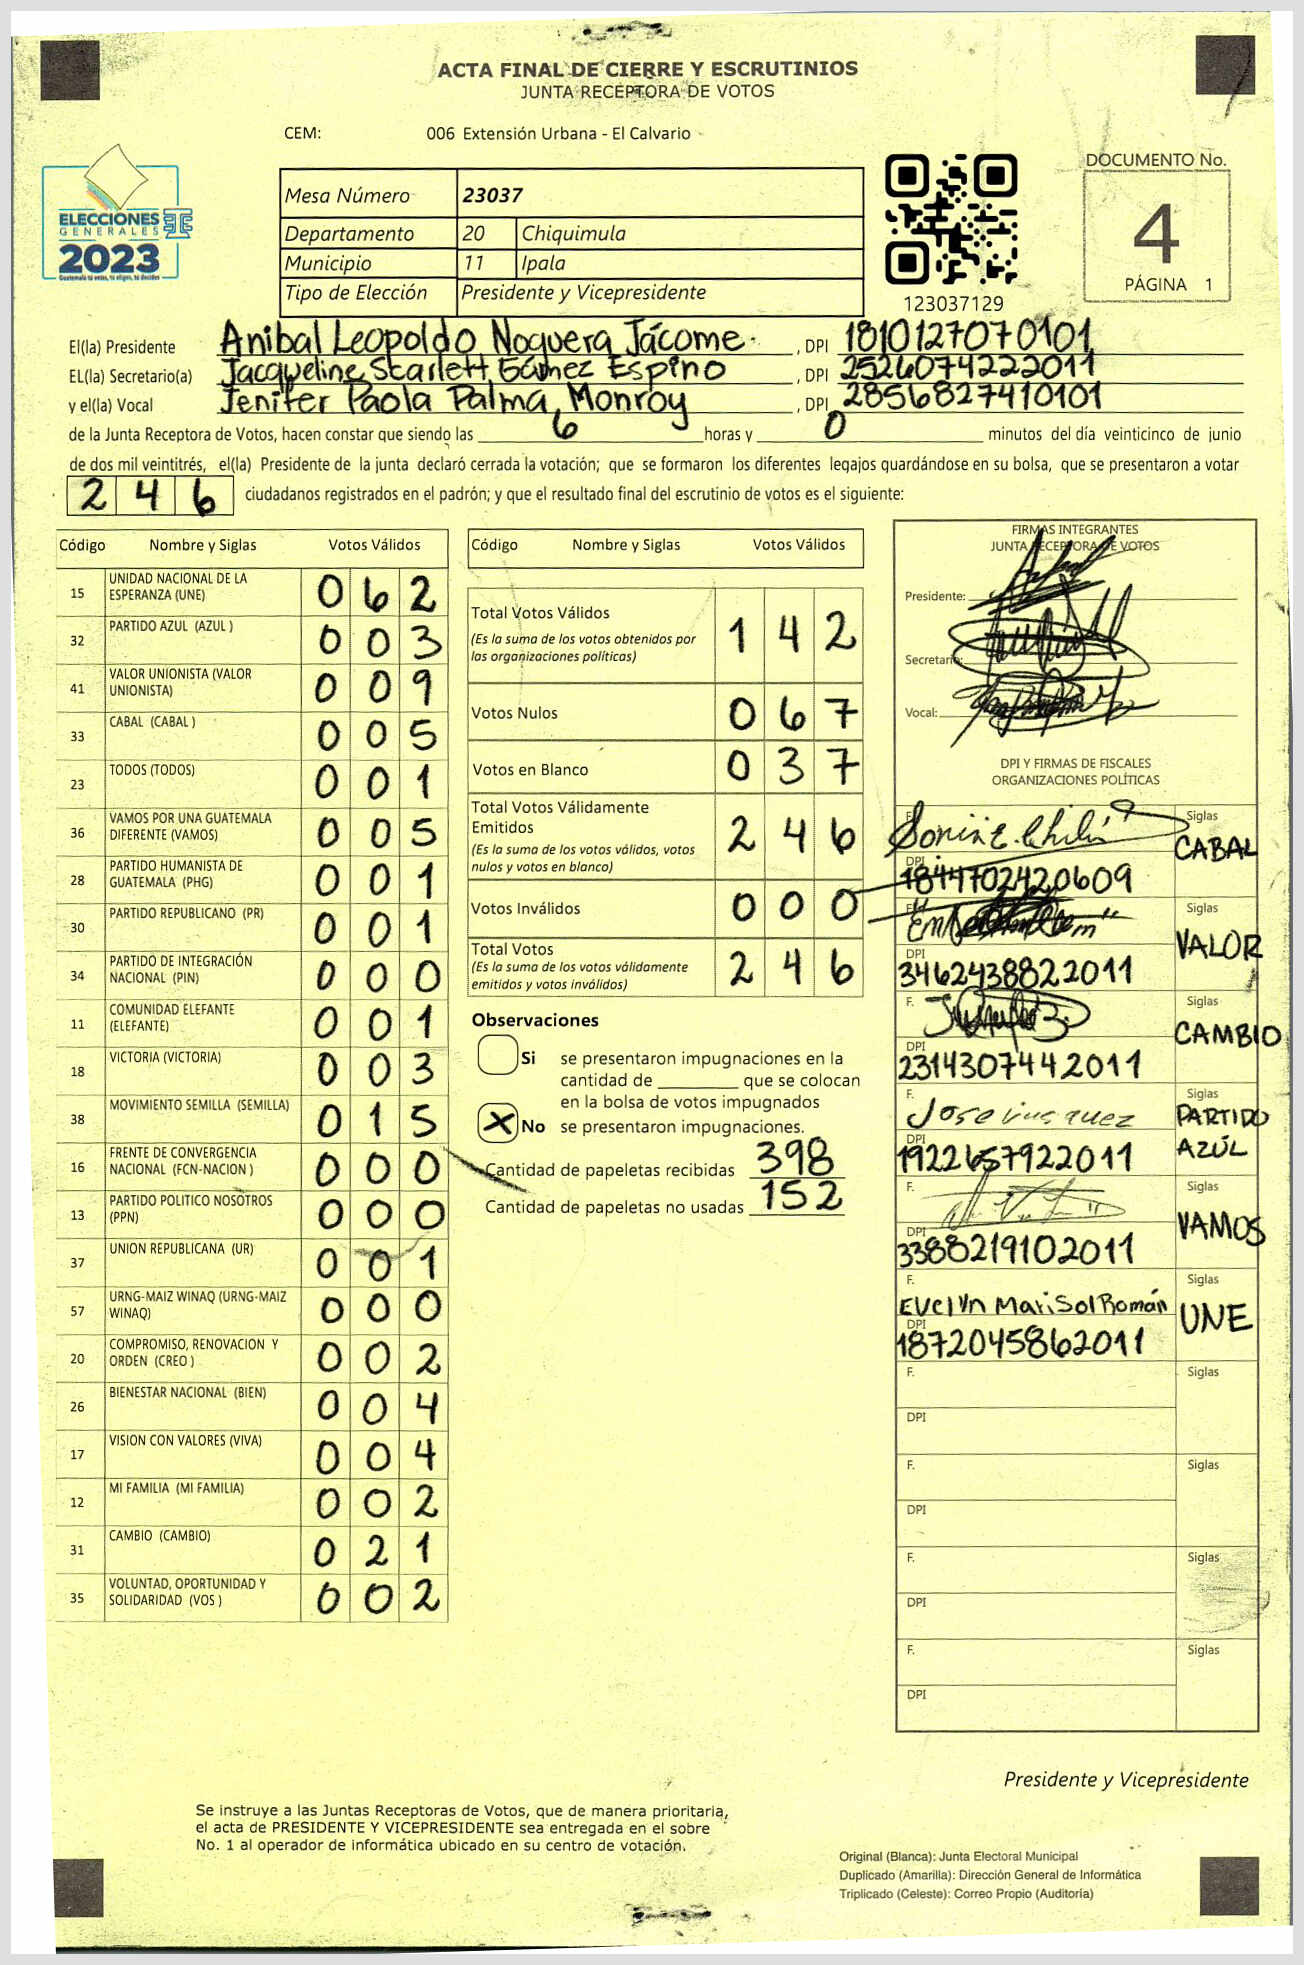 ACTA FINAL DE CIERRE Y ESCRUTINIOS
JUNTA RECEPTORA DE VOTOS
CEM: 006 Extensión Urbana - El Calvario
ELECCIONES
GENERALES
2023
Guatemala tú votas, tú eliges, tú decides
Mesa Número 23037
Departamento 20 Chiquimula
Municipio 11 Ipala
Tipo de Elección Presidente y Vicepresidente
123037129
DOCUMENTO No.
4
PÁGINA 1
El(la) Presidente Anibal Leopoldo Noguera Jácome. , DPI 1810127070101
EL(la) Secretario(a) Jacqueline Starlett Gámez Espino , DPI 2526074222011
y el(la) Vocal Jenifer Paola Palma Monroy , DPI 2856827410101
de la Junta Receptora de Votos, hacen constar que siendo las 6 horas y 0 minutos del día veinticinco de junio
de dos mil veintitrés, el(la) Presidente de la junta declaró cerrada la votación; que se formaron los diferentes legajos guardándose en su bolsa, que se presentaron a votar
246 ciudadanos registrados en el padrón; y que el resultado final del escrutinio de votos es el siguiente:
Código Nombre y Siglas Votos Válidos
15 UNIDAD NACIONAL DE LA ESPERANZA (UNE) 062
32 PARTIDO AZUL (AZUL ) 003
41 VALOR UNIONISTA (VALOR UNIONISTA) 009
33 CABAL (CABAL ) 005
23 TODOS (TODOS) 001
36 VAMOS POR UNA GUATEMALA DIFERENTE (VAMOS) 005
28 PARTIDO HUMANISTA DE GUATEMALA (PHG) 001
30 PARTIDO REPUBLICANO (PR) 001
34 PARTIDO DE INTEGRACIÓN NACIONAL (PIN) 000
11 COMUNIDAD ELEFANTE (ELEFANTE) 001
18 VICTORIA (VICTORIA) 003
38 MOVIMIENTO SEMILLA (SEMILLA) 015
16 FRENTE DE CONVERGENCIA NACIONAL (FCN-NACION ) 000
13 PARTIDO POLITICO NOSOTROS (PPN) 000
37 UNION REPUBLICANA (UR) 001
57 URNG-MAIZ WINAQ (URNG-MAIZ WINAQ) 000
20 COMPROMISO, RENOVACION Y ORDEN (CREO ) 002
26 BIENESTAR NACIONAL (BIEN) 004
17 VISION CON VALORES (VIVA) 004
12 MI FAMILIA (MI FAMILIA) 002
31 CAMBIO (CAMBIO) 021
35 VOLUNTAD, OPORTUNIDAD Y SOLIDARIDAD (VOS ) 002
Código Nombre y Siglas Votos Válidos
Total Votos Válidos 142
(Es la suma de los votos obtenidos por
las organizaciones políticas)
Votos Nulos 067
Votos en Blanco 037
Total Votos Válidamente
Emitidos 246
(Es la suma de los votos válidos, votos
nulos y votos en blanco)
Votos Inválidos 000
Total Votos 246
(Es la suma de los votos válidamente
emitidos y votos inválidos)
Observaciones
Si se presentaron impugnaciones en la
cantidad de ________ que se colocan
en la bolsa de votos impugnados
X No se presentaron impugnaciones.
Cantidad de papeletas recibidas 398
Cantidad de papeletas no usadas 152
FIRMAS INTEGRANTES
JUNTA RECEPTORA DE VOTOS
Presidente:
Secretario:
Vocal:
DPI Y FIRMAS DE FISCALES
ORGANIZACIONES POLÍTICAS
F. Sonia E. Siglas CABAL
DPI 1844702420609
F. Siglas VALOR
DPI 3462438822011
F. Siglas CAMBIO
DPI 2314307442011
F. Jose vasquez Siglas PARTIDO AZÚL
DPI 1922657922011
F. Siglas VAMOS
DPI 3388219102011
F. Evelyn Marisol Román Siglas UNE
DPI 1872045862011
F. Siglas
DPI
F. Siglas
DPI
F. Siglas
DPI
F. Siglas
DPI
Presidente y Vicepresidente
Se instruye a las Juntas Receptoras de Votos, que de manera prioritaria,
el acta de PRESIDENTE Y VICEPRESIDENTE sea entregada en el sobre
No. 1 al operador de informática ubicado en su centro de votación.
Original (Blanca): Junta Electoral Municipal
Duplicado (Amarilla): Dirección General de Informática
Triplicado (Celeste): Correo Propio (Auditoría)